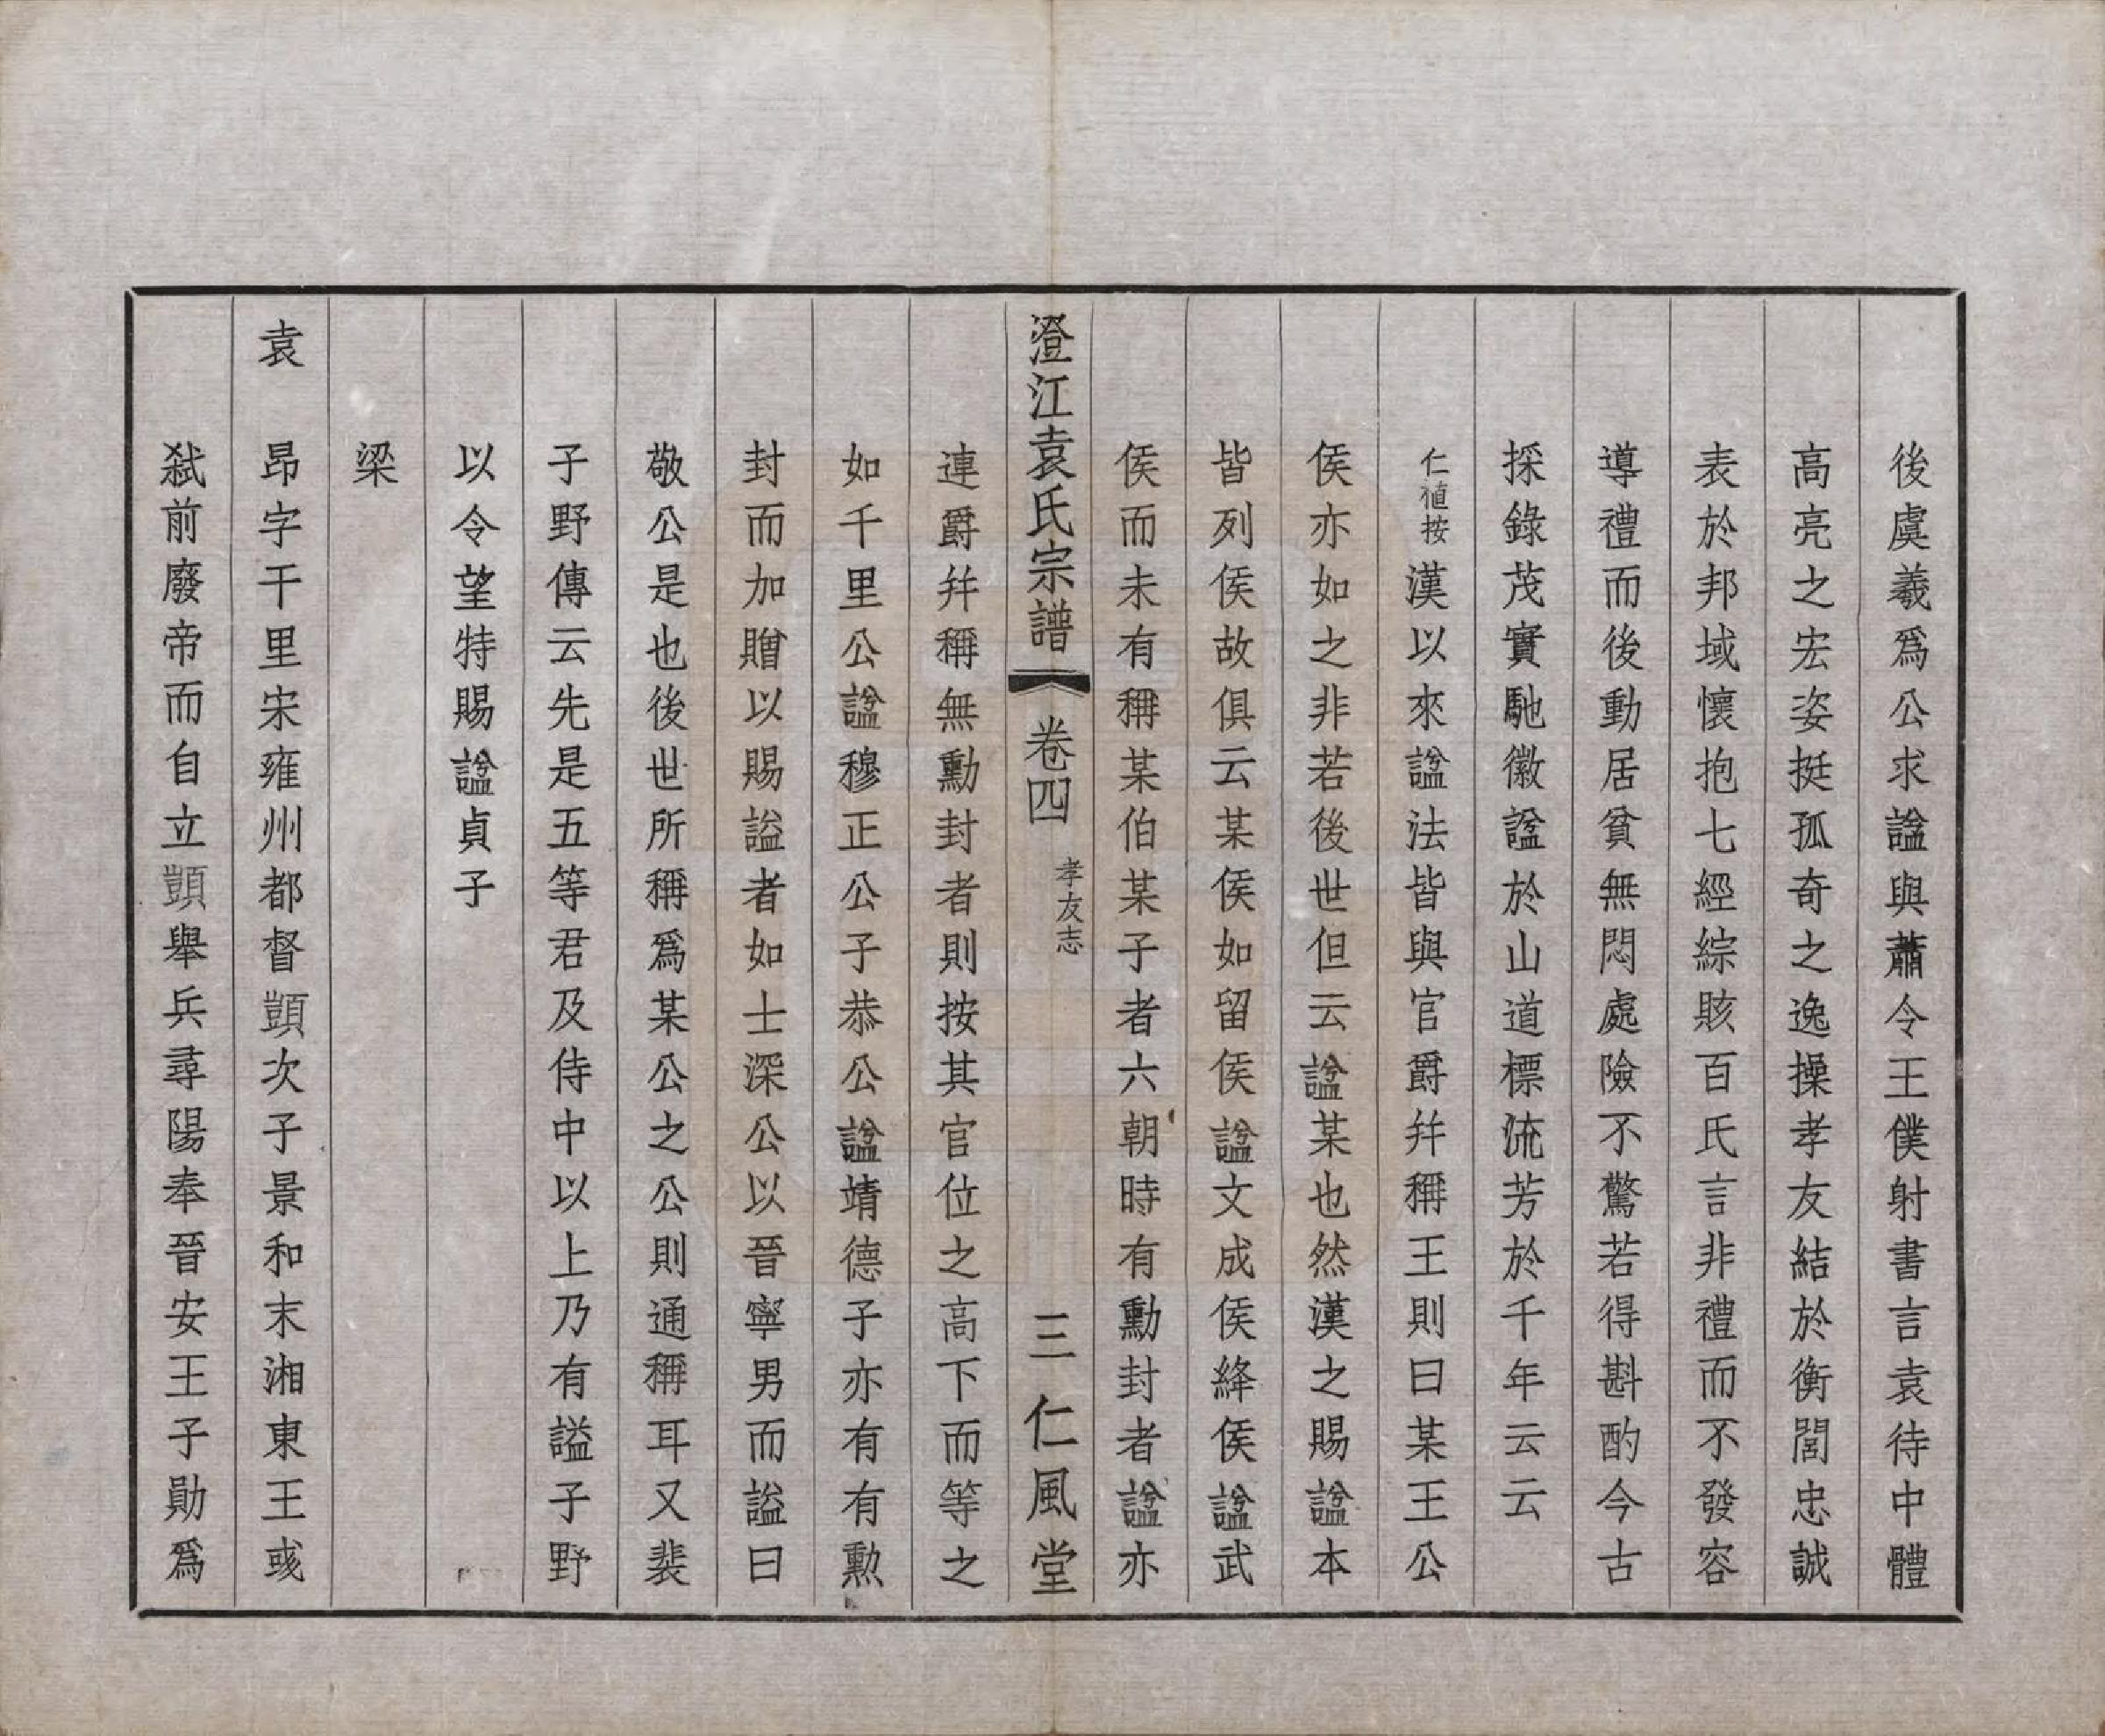 後虞羲爲公求諡與蕭令王僕射書言袁待中體
高亮之宏姿挺孤奇之逸操孝友結於衡閭忠誠
表於邦域懷抱七經綜賅百氏言非禮而不發容
導禮而後動居貧無悶處險不驚若得斟酌今古
採錄茂實馳徽諡於山道標流芳於千年云云
仁植按漢以來諡法皆與官爵幷稱王則曰某王公
侯亦如之非若後世但云諡某也然漢之賜諡本
皆列侯故俱云某侯如留侯諡文成侯絳侯諡武
侯而未有稱某伯某子者六朝時有勳封者諡亦
澄江袁氏宗譜 卷四 孝友志 三 仁風堂
連爵幷稱無勳封者則按其官位之高下而等之
如千里公諡穆正公子恭公諡靖德子亦有有勲
封而加贈以賜謚者如士深公以晉寧男而謚曰
敬公是也後世所稱爲某公之公則通稱耳又裴
子野傳云先是五等君及侍中以上乃有謚子野
以令望特賜諡貞子
梁
袁 昂字千里宋雍州都督顗次子景和末湘東王彧
弒前廢帝而自立顗舉兵尋陽奉晉安王子勛爲